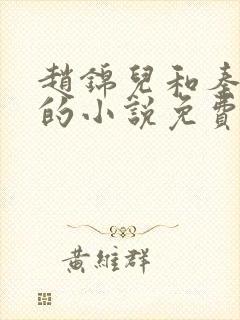 趙錦兒和秦
的小說免費
黃維群